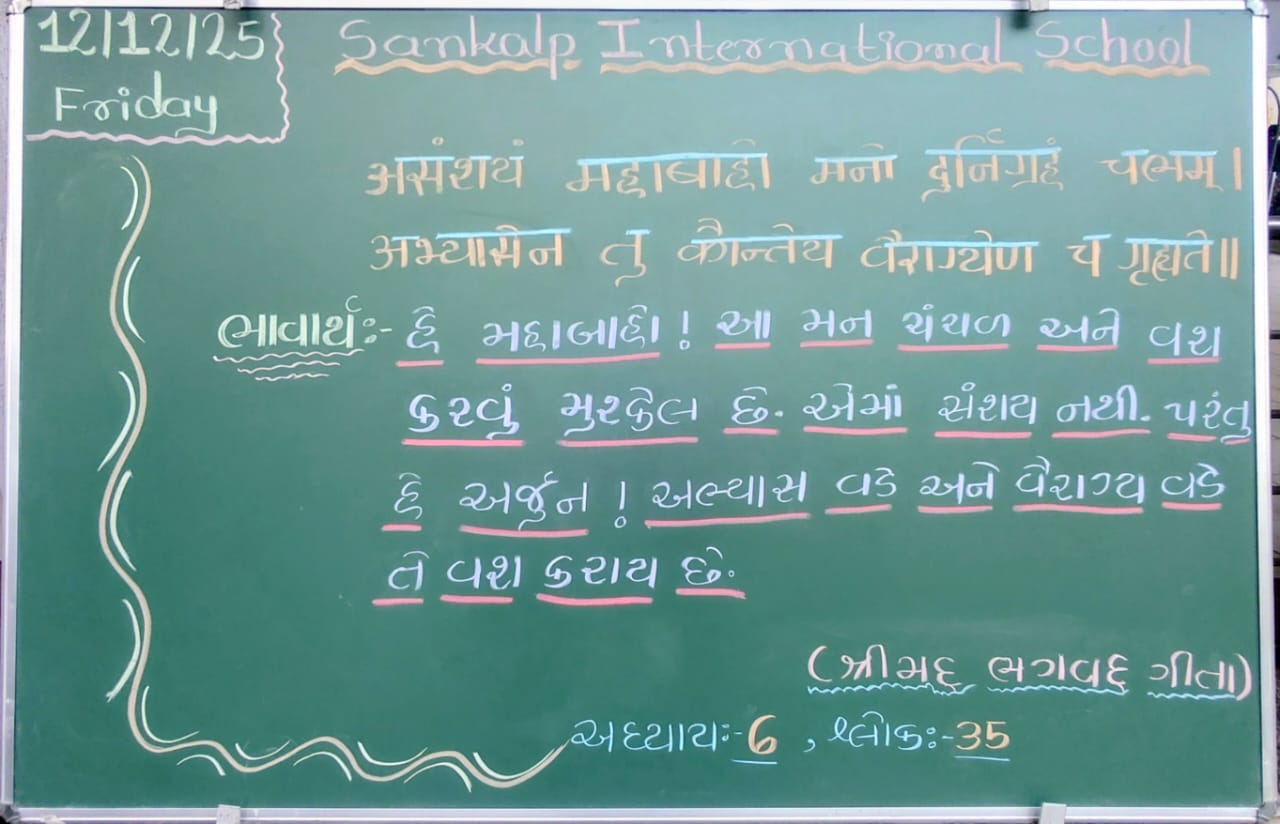 12/12/25
Friday
Sankalp International School
असंशयं महाबाहो मनो दुर्निग्रहं चभम्।
अभ्यासेन तु कौन्तेय वैराग्येण च गृह्यते॥
ભાવાર્થઃ- હે મહાબાહો! આ મન ચંચળ અને વશ
કરવું મુશ્કેલ છે. એમાં સંશય નથી. પરંતુ
હે અર્જુન! અભ્યાસ વડે અને વૈરાગ્ય વડે
તે વશ કરાય છે.
(શ્રીમદ્ ભગવદ્ ગીતા)
અધ્યાયઃ-6, શ્લોકઃ-35